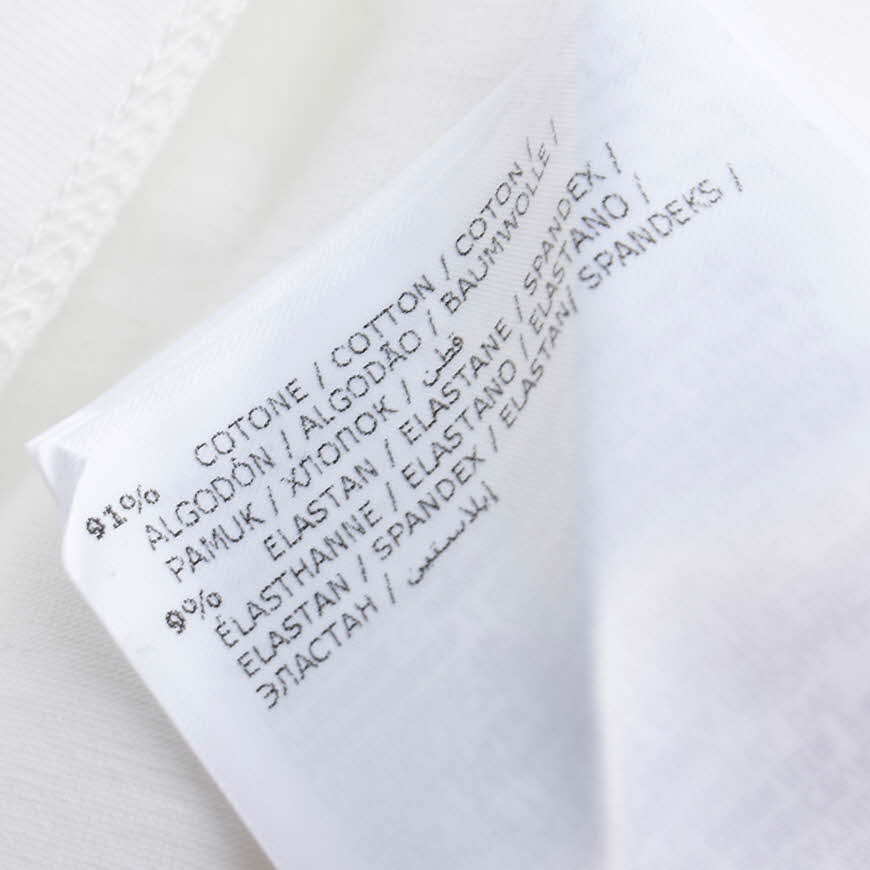 91% COTONE / COTTON / COTON /
ALGODÓN / ALGODÃO / BAUMWOLLE /
PAMUK / ХЛОПОК / قطن
9% ELASTAN / ELASTANE / SPANDEX /
ÉLASTHANNE / ELASTANO / ELASTANO /
ELASTAN / SPANDEX / ELASTANİ SPANDEKS /
ЭЛАСТАН / إيلاستين